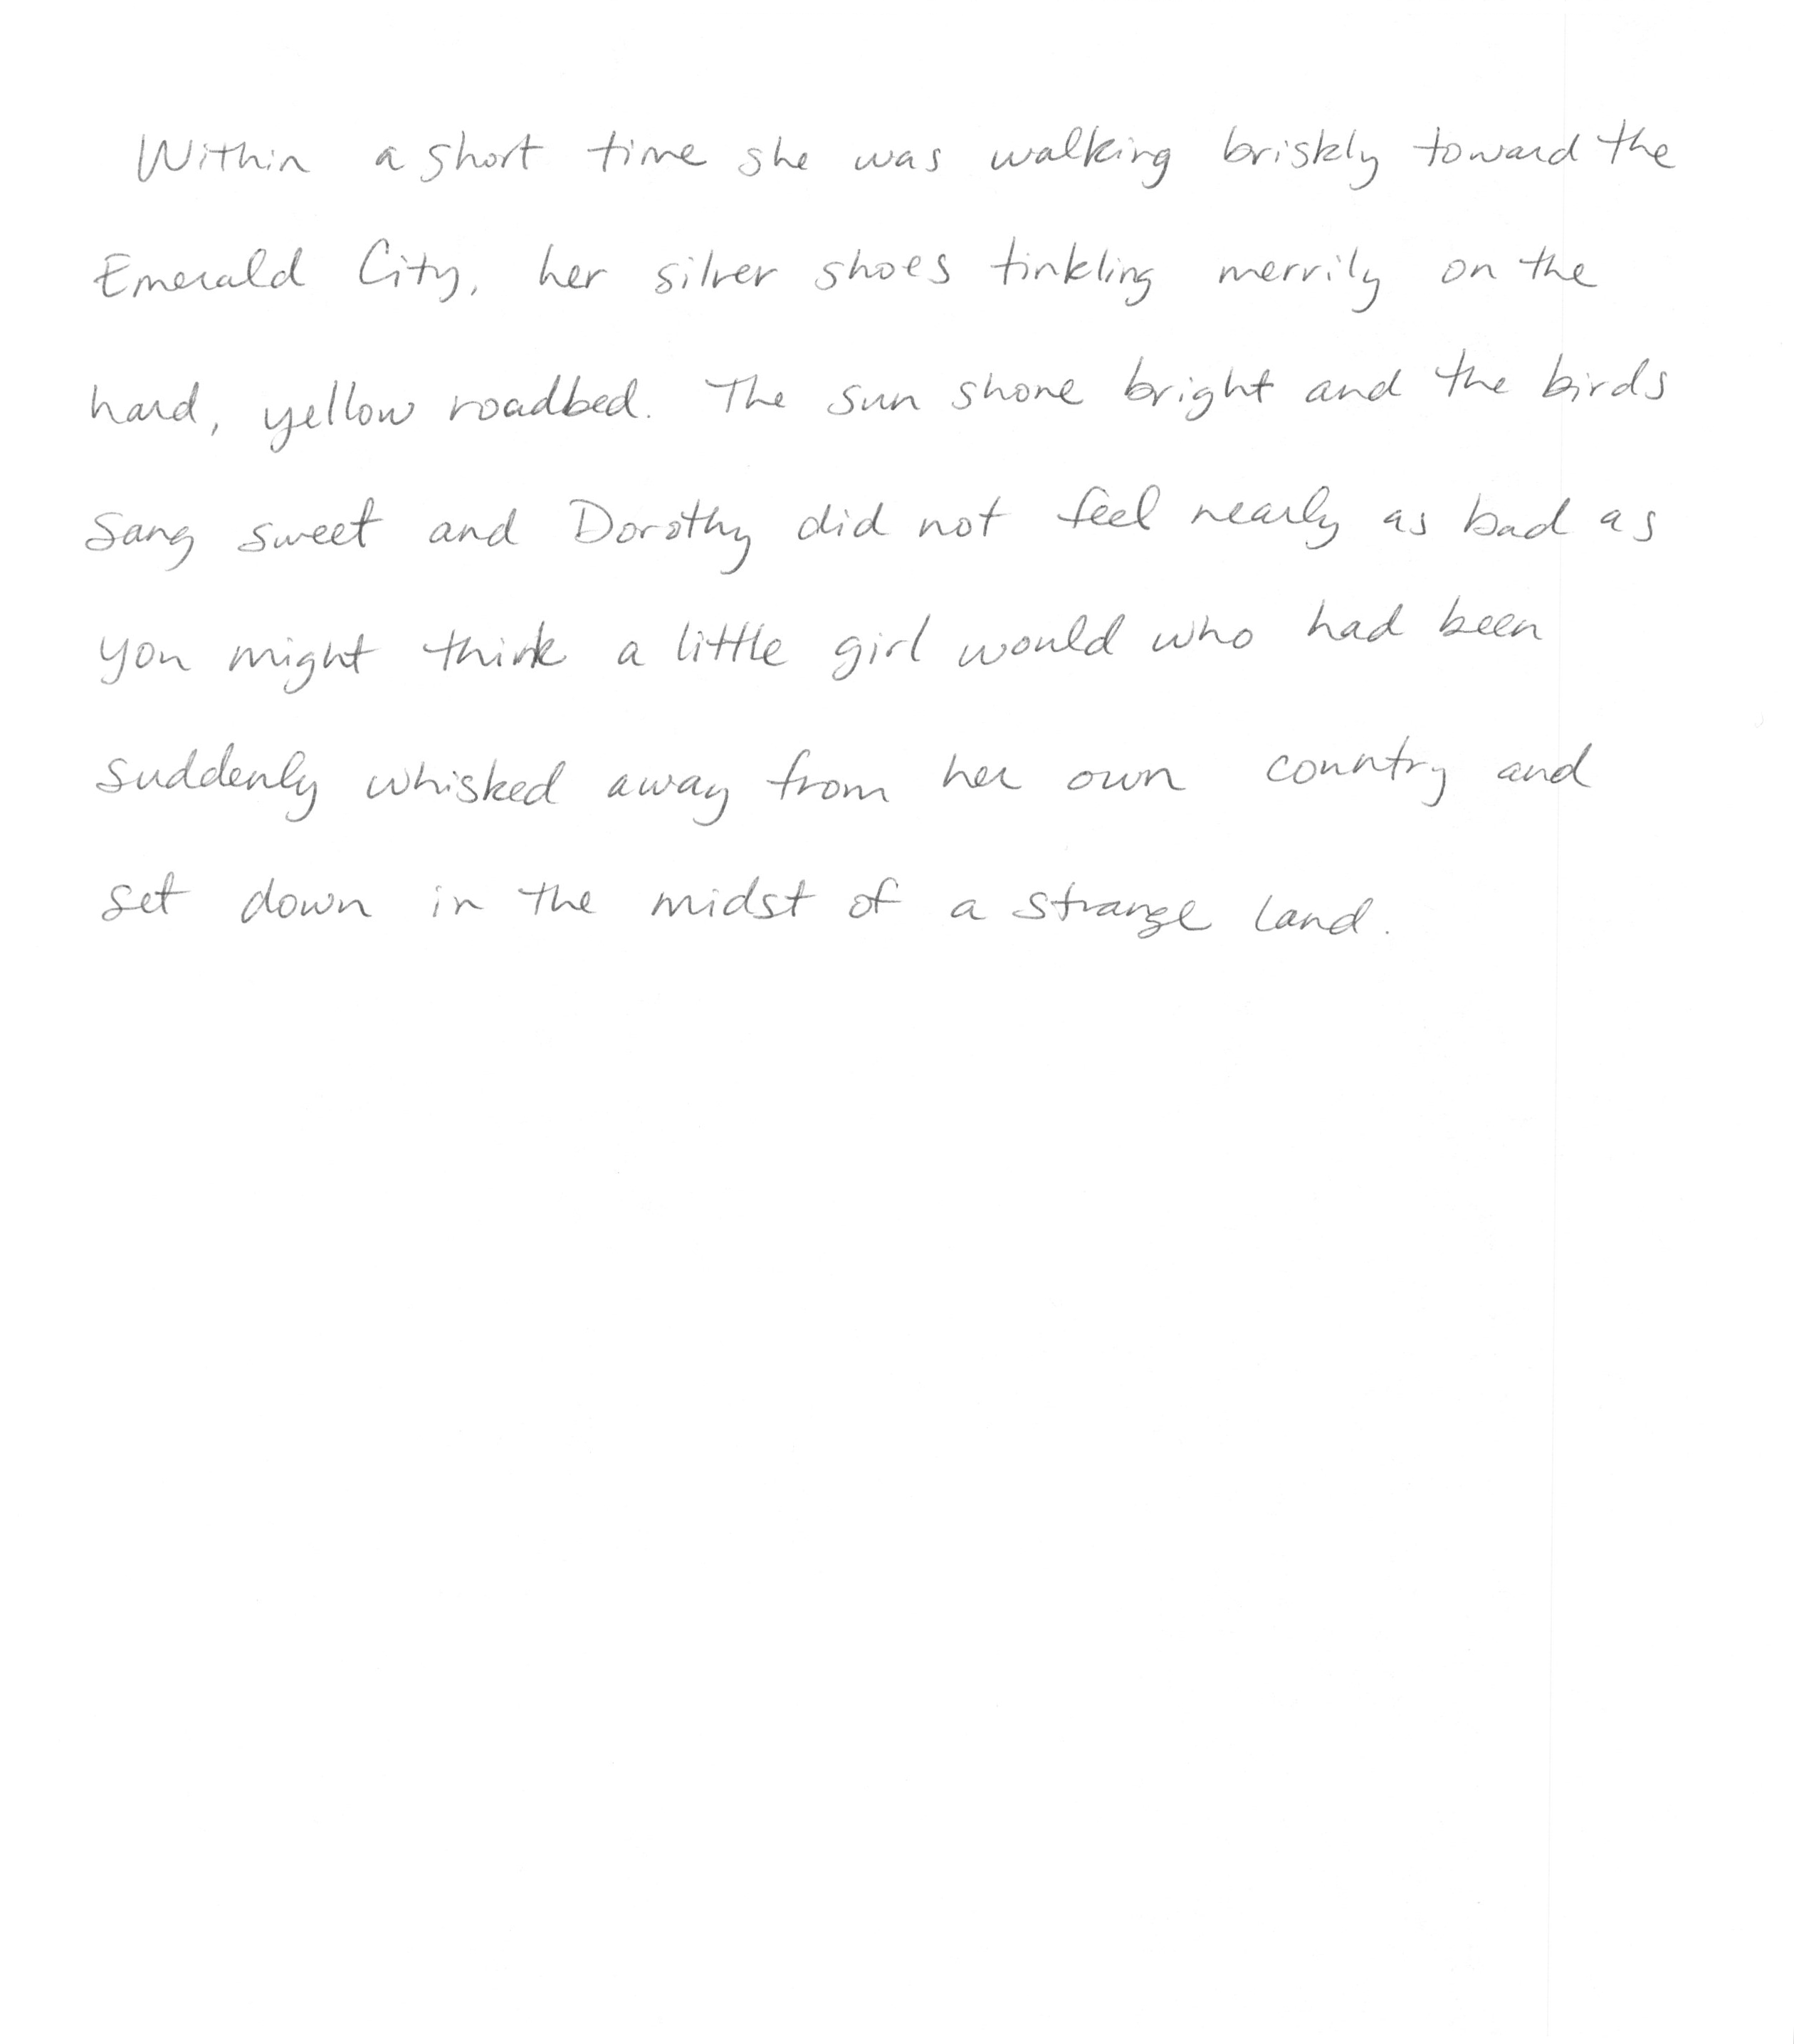 Within a short time she was walking briskly toward the
Emerald City, her silver shoes tinkling merrily on the
hard, yellow roadbed. The sun shone bright and the birds
sang sweet and Dorothy did not feel nearly as bad as
you might think a little girl would who had been
suddenly whisked away from her own country and
set down in the midst of a strange land.